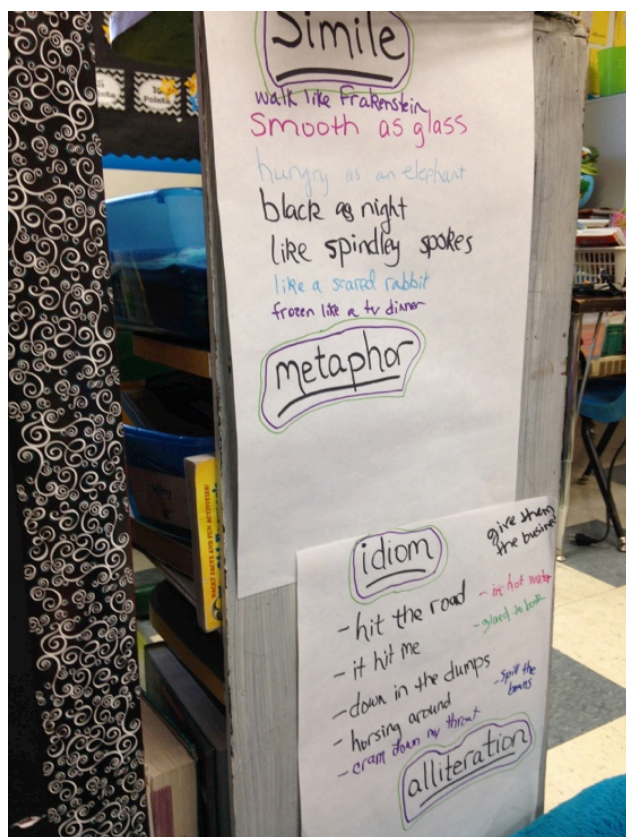 Simile
walk like Frakenstein
Smooth as glass
hungry as an elephant
black as night
like spindley spokes
like a scared rabbit
frozen like a tv dinner
metaphor
idiom
give them
the business
- hit the road
- in hot water
- glued to book
- it hit me
- down in the dumps
- spill the
beans
- horsing around
- cram down my throat
alliteration